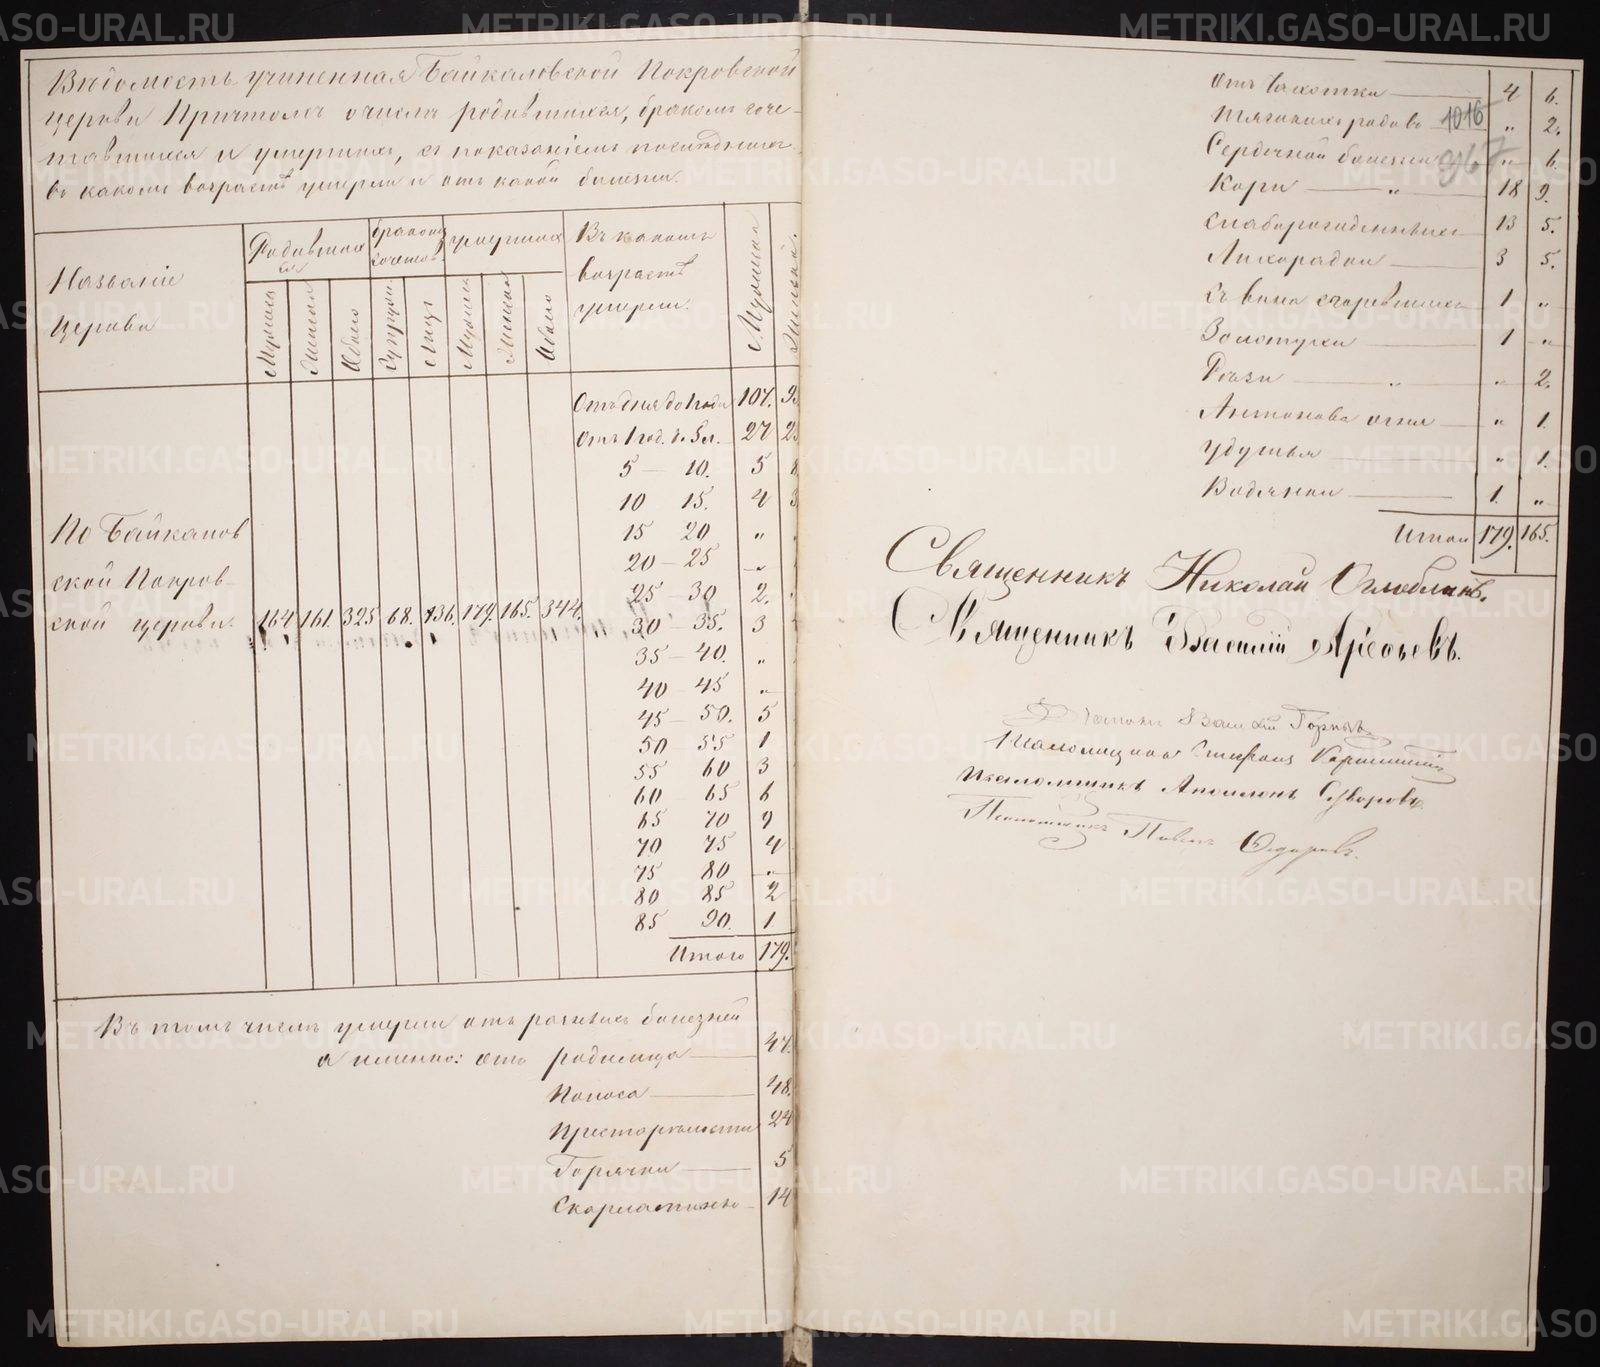 Вѣдомость учиненная Байкаловской Покровской
церкви Причтомъ о числѣ родившихся, бракомъ соче-
тавшихся и умершихъ, съ показаніемъ послѣднихъ
въ какомъ возрастѣ умерли и отъ какой болѣзни.
Названіе
церкви
Родившихся
браковъ
сочетав.
умершихъ
Въ какомъ
возрастѣ
умерли.
Мужеска
Женска
Обоего
Супруж.
Лицъ
Мужеска
Женска
Обоего
Мужескій
Женскій.
Отъ дня до 1 года 107. 93
Отъ 1 год. до 5 л. 27 23
5 — 10. 5 8
10 15. 4 3
15 20 "
20 — 25 "
25 — 30 2.
30 — 35. 3
35 — 40. "
40 — 45 "
45 — 50. 5
50 — 55 1
55 60 3
60 65 6
65 70 9
70 75 4
75 80 "
80 85 2
85 90. 1
Итого 179.
По Байкалов
ской Покров-
ской церкви. 164 161. 325 68. 136. 179. 165. 344.
Въ томъ числѣ умерли отъ разныхъ болѣзней
а именно: отъ родимца 47.
Поноса 48.
Престарѣлости 24
Горячки 5
Скарлатиною 14
Отъ Чахотки 4 6.
Тяжкихъ родовъ " 2.
1016
Сердечной болѣзни " 6.
967
Кори " 18 9.
Слаборожденныхъ 13 5.
Лихорадки 3 5.
Съ вина сгорѣвшихъ 1 "
Золотухи 1 "
Грызи " " 2.
Антонова огня " 1.
Удушья " 1.
Водянки 1. "
Итого 179. 165.
Священникъ Николай Оглоблинъ.
Священникъ Василій Арефьевъ.
Діаконъ Василій Горныхъ
Псаломщикъ
Псаломщикъ Аполлонъ Суворовъ
Псаломщикъ Павелъ Ѳедоровъ.
METRIKI.GASO-URAL.RU